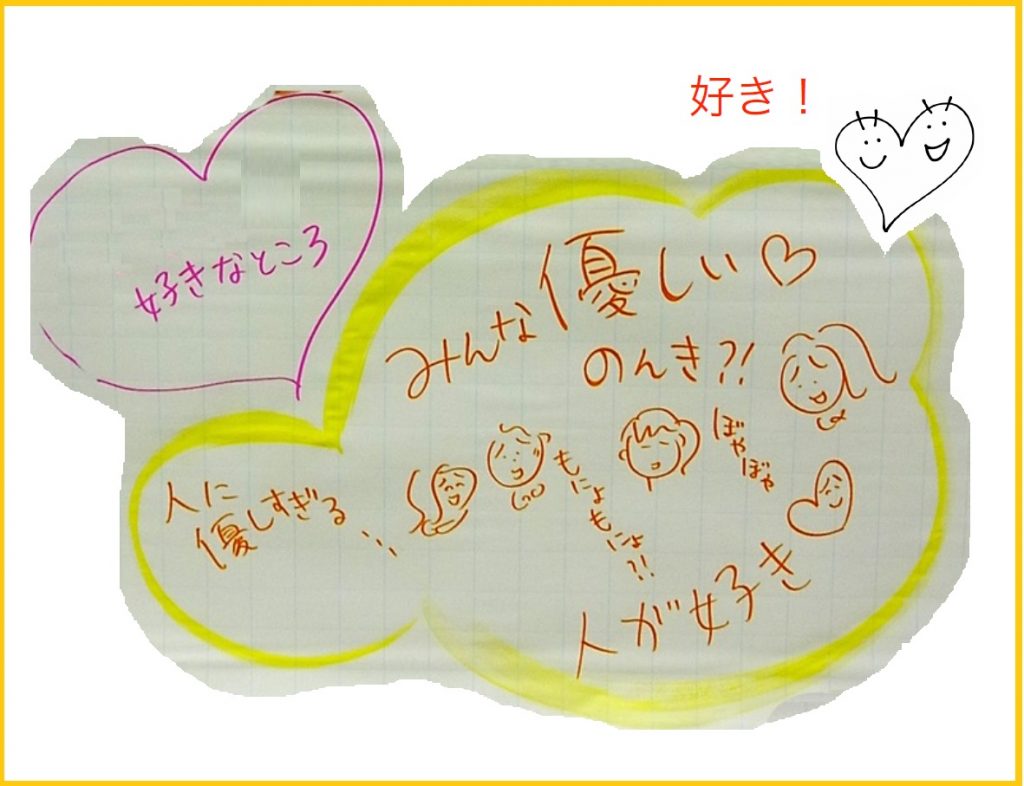 好き！
好きなところ
みんな優しい♡
のんき?!
ぼやぼや
もにょもにょ?!
人に
優しすぎる...
人が好き